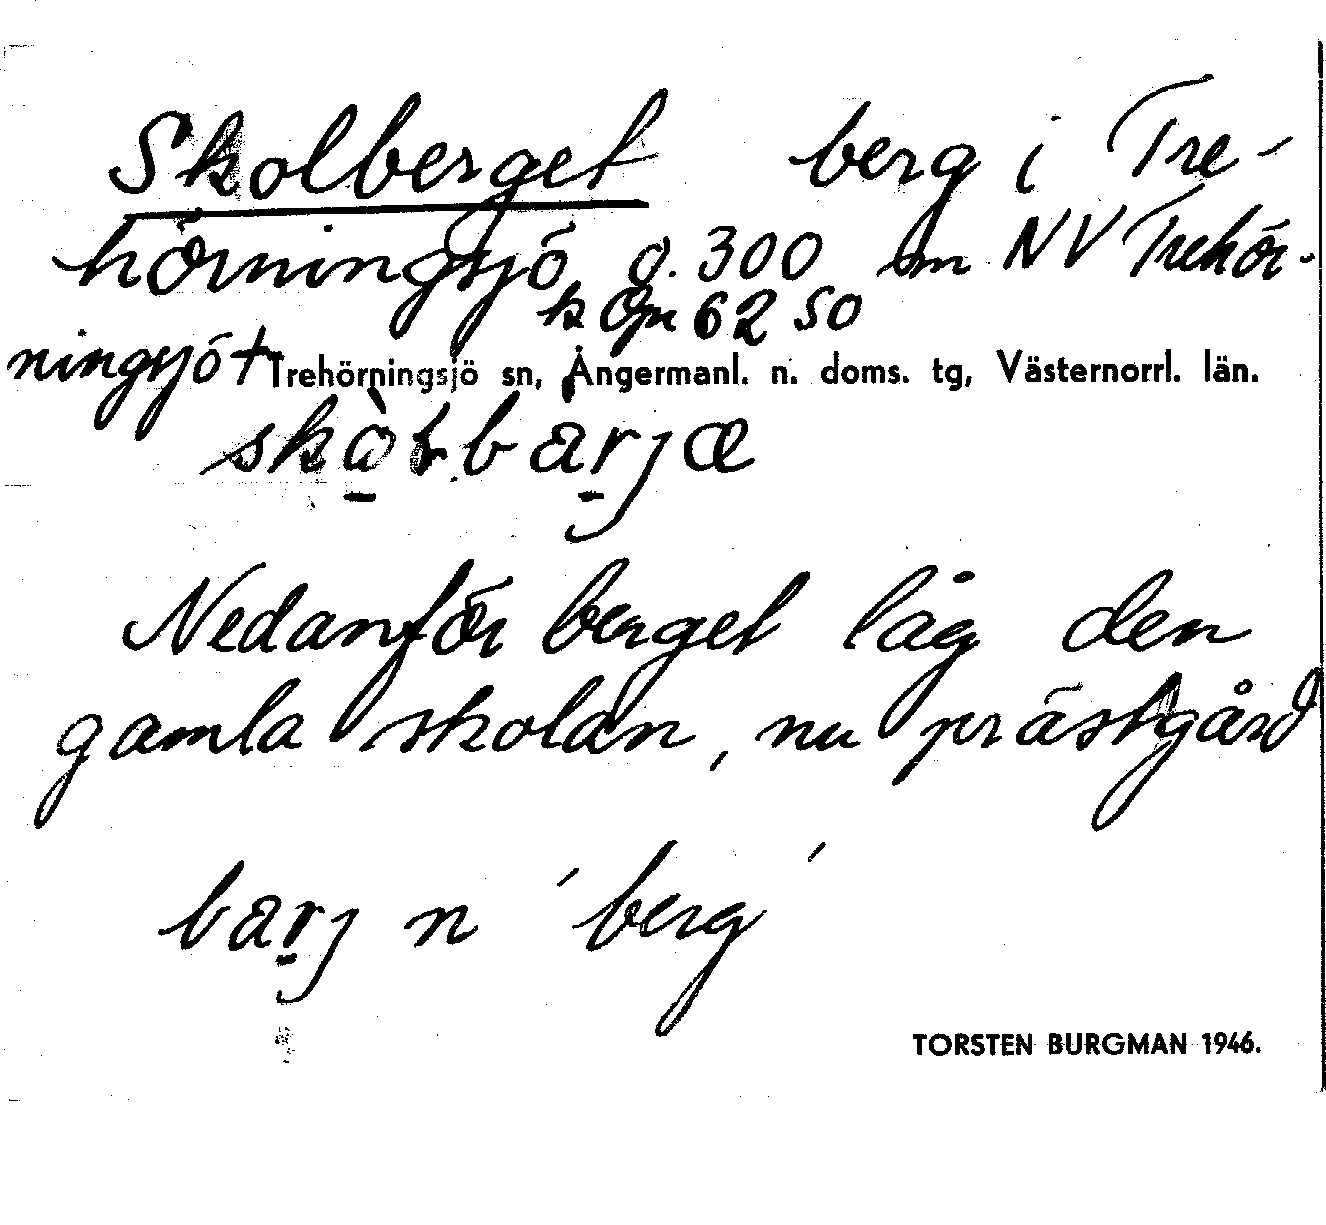 Skolberget berg i Tre-
hörningsjö o. 300 m NV Trehör-
k Opr 62 50
ningsjö t
Trehörningsjö sn, Ångermanl. n. doms. tg, Västernorrl. län.
Nedanför berget låg den
gamla skolan, nu prästgård
barj n 'berg'
TORSTEN BURGMAN 1946.